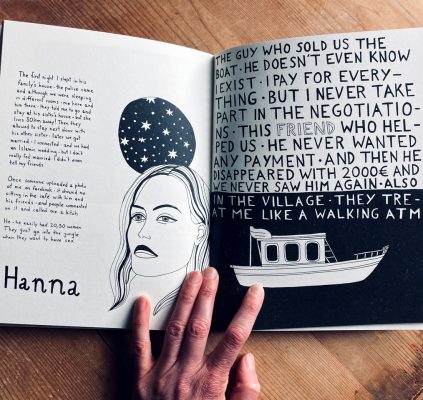 The first night I slept in his
family's house - the police came
and although we were sleeping
in different rooms - me here and
him there - they told me to go and
stay at his sister's house - but she
lives 50km away! Then they
allowed to stay next door with
his other sister - later we got
married - I converted - and we had
an Islamic wedding - but I don't
really feel married - I didn't even
tell my friends
Once someone uploaded a photo
of me on facebook - it showed me
sitting in the cafe with him and
his friends - and people commented
on it and called me a bitch
He - he easily had 20, 30 women
They just go into the jungle
when they want to have sex
Hanna
THE GUY WHO SOLD US THE
BOAT · HE DOESN'T EVEN KNOW
I EXIST · I PAY FOR EVERY-
THING · BUT I NEVER TAKE
PART IN THE NEGOTIATIO-
NS · THIS FRIEND WHO HEL-
PED US · HE NEVER WANTED
ANY PAYMENT · AND THEN HE
DISAPPEARED WITH 2000€ AND
WE NEVER SAW HIM AGAIN · ALSO
IN THE VILLAGE · THEY TRE-
AT ME LIKE A WALKING ATM